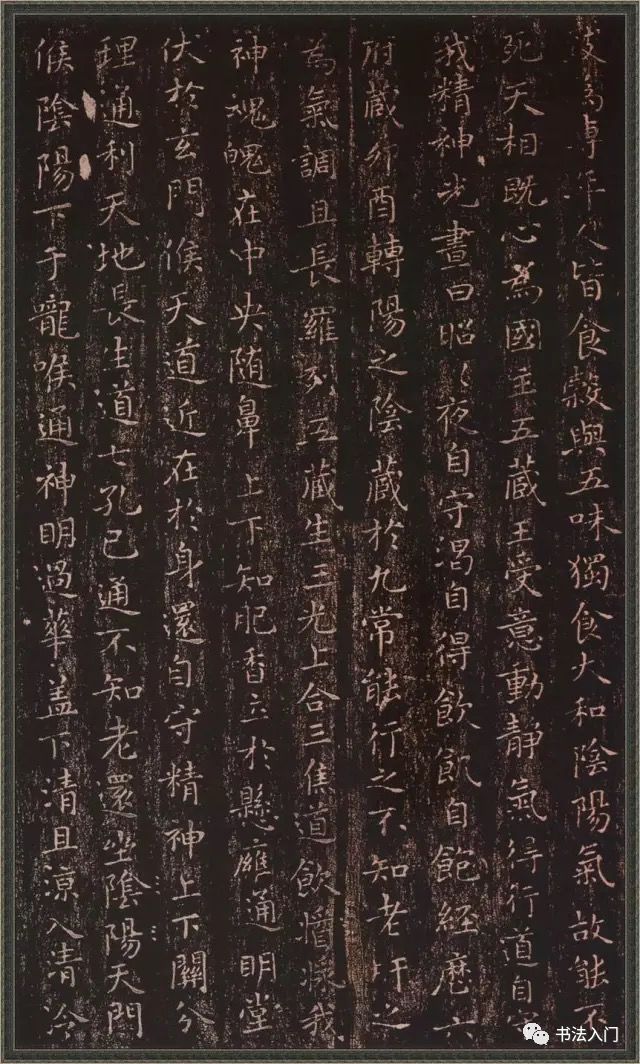 年人皆食穀與五味獨食大和陰陽氣故能不
死天相既心為國主五藏王受意動靜氣得行道自
我精神光晝日昭〻夜自守渴自得飲飢自飽經歷六
府藏卯酉轉陽之陰藏於九常能行之不知老肝之
為氣調且長羅列五藏生三光上合三焦道飲漿我
神魂魄在中央随鼻上下知肥香立於懸膺通明堂
伏於玄門候天道近在於身還自守精神上下關分
理通利天地長生道七孔已通不知老還坐陰陽天門
候陰陽下于嚨喉通神明過華盖下清且涼入清冷
书法入门